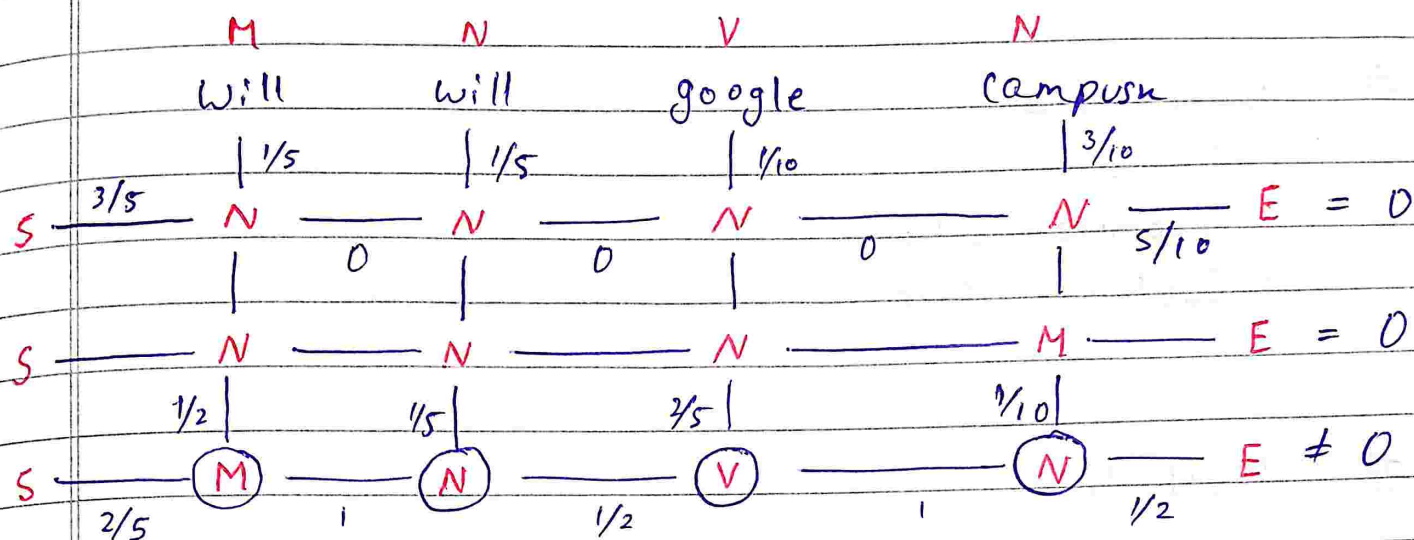 M N V N
Will will google Campusn
1/5 1/5 1/10 3/10
S 3/5 N 0 N 0 N 0 N 5/10 E = 0
S N N N M E = 0
1/2 1/5 2/5 1/10
S M N V N E ≠ 0
2/5 1 1/2 1 1/2